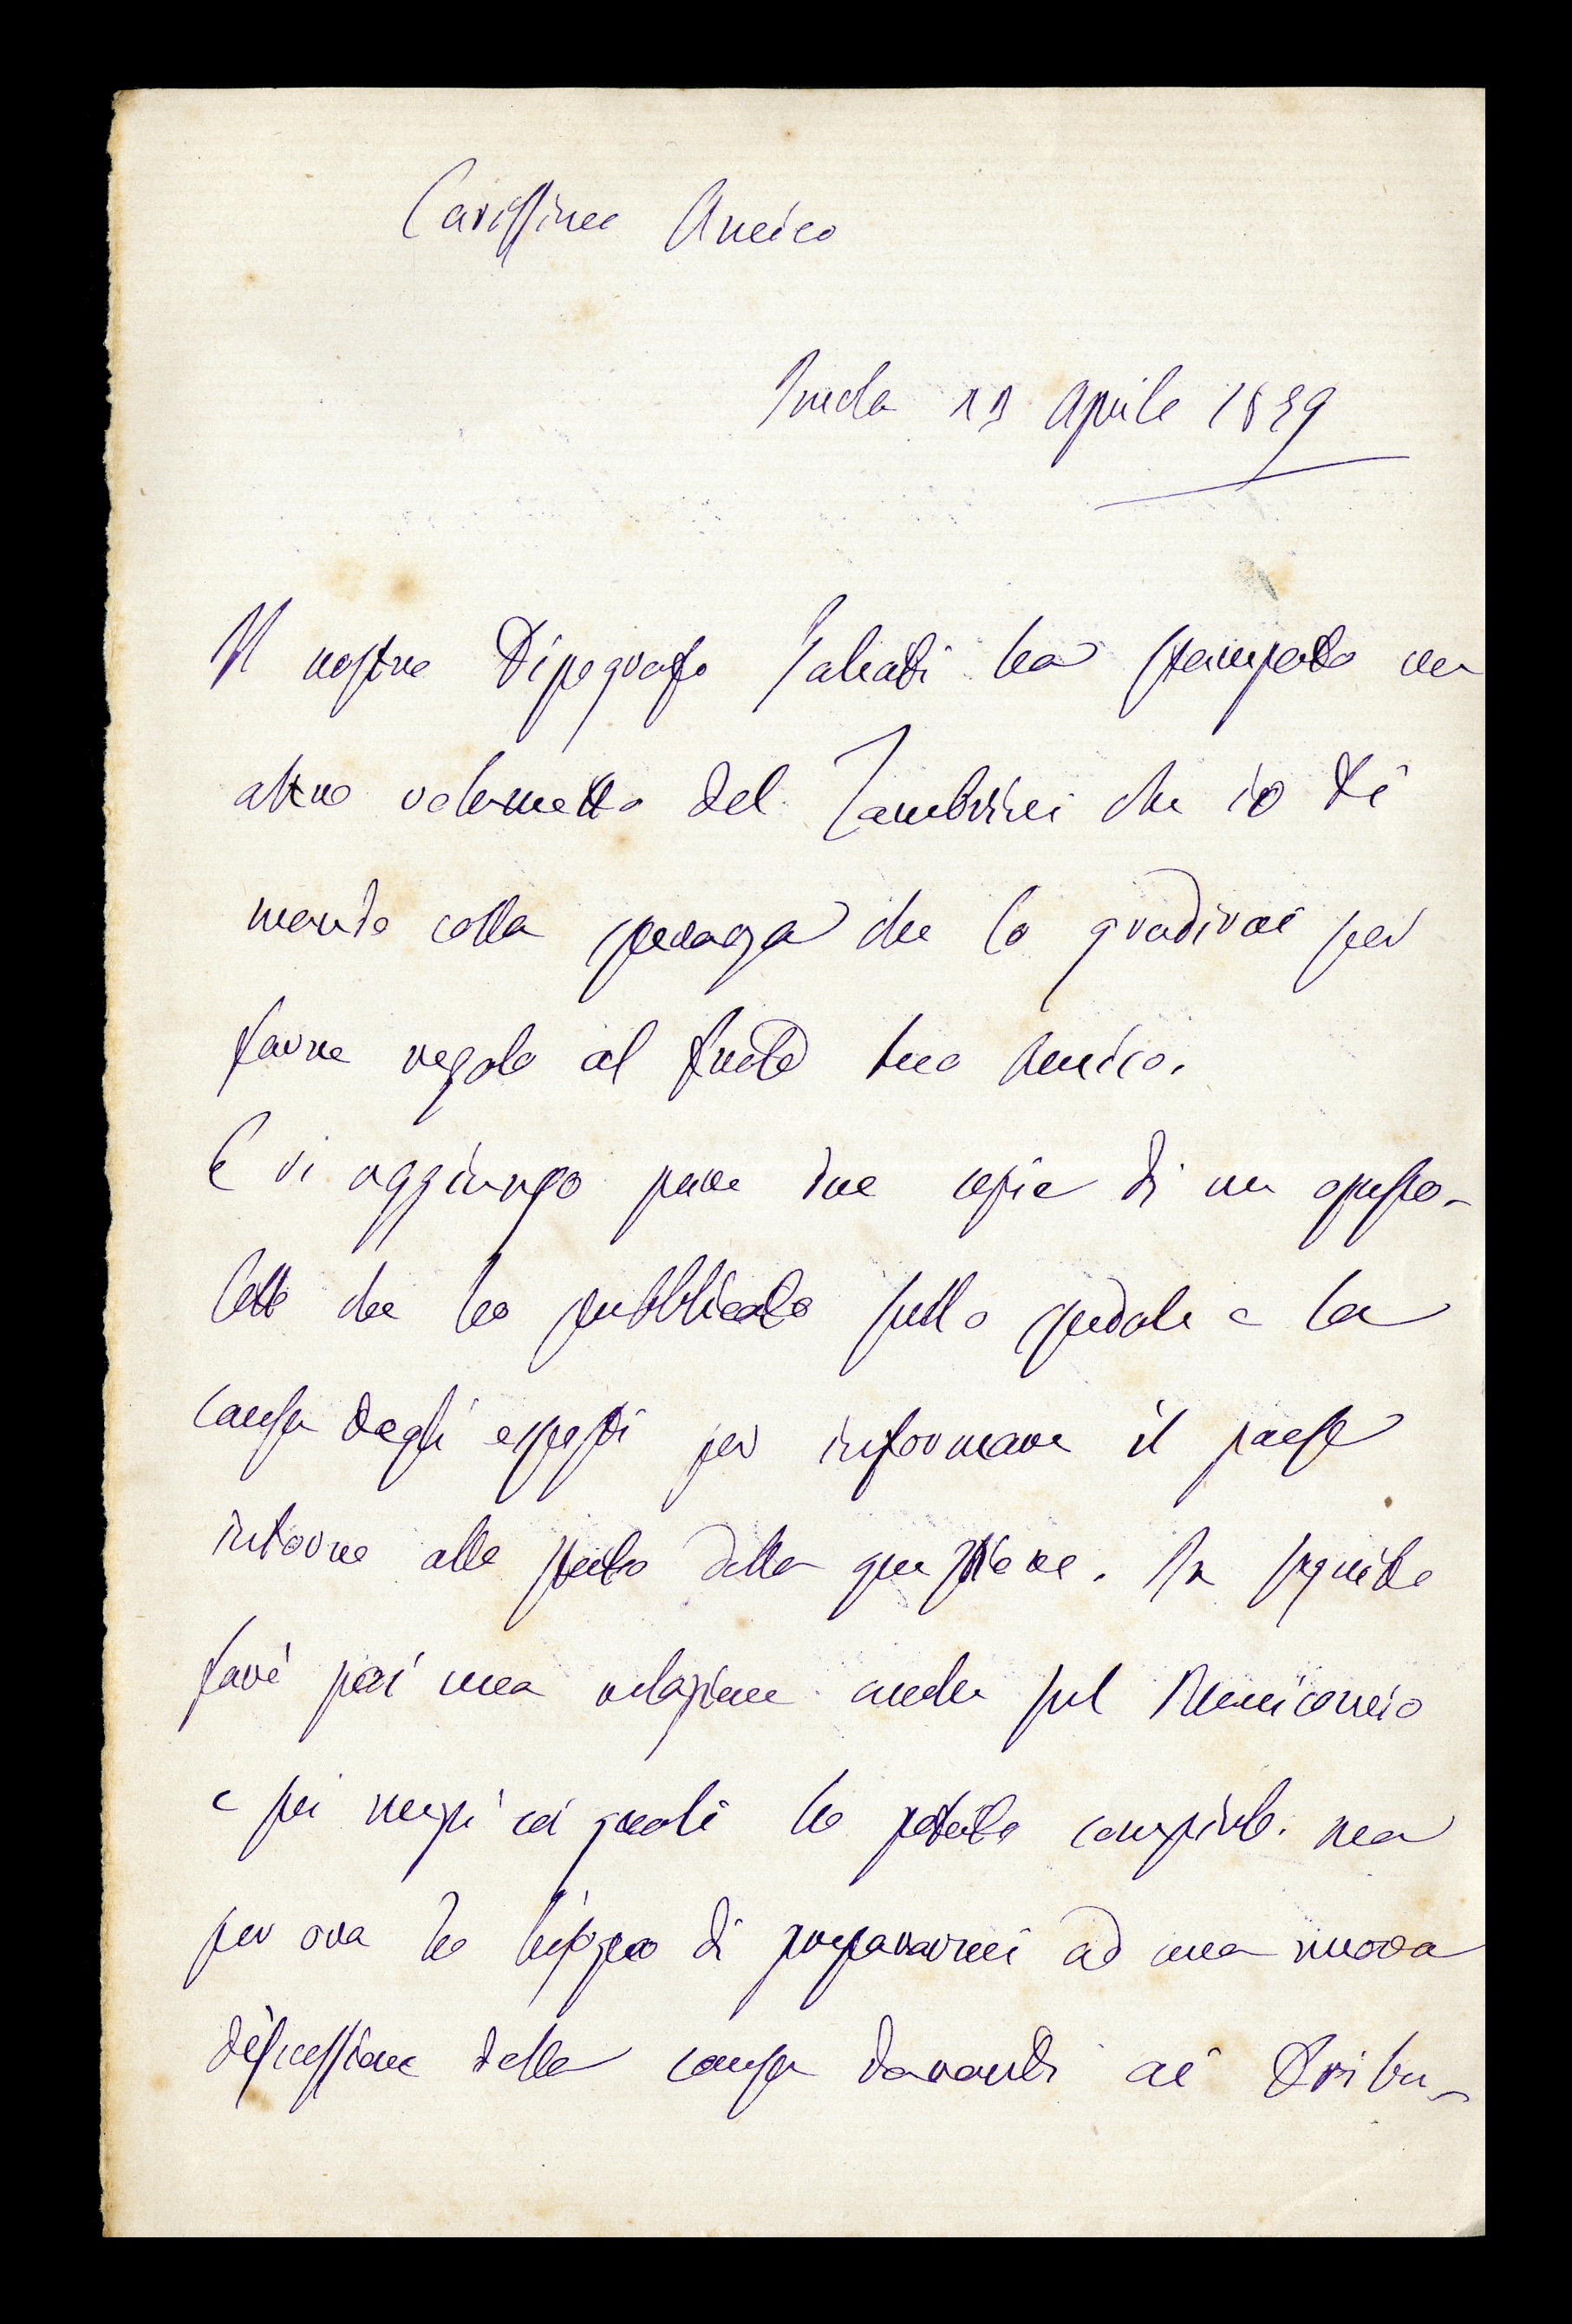 Carissimo Amico
Imola 13 Aprile 1889
Il nostro Tipografo Galeati ha stampato un
altro volumetto del Zambrini che io ti
mando colla speranza che lo gradirai per
farne regalo al  tuo Amico.
E vi aggiungo pure due copie di un opusco-
letto che ho pubblicato sullo spedale e la
causa degli esposti per informare il paese
intorno allo stato della questione. In seguito
farò poi una relazione anche sul Manicomio
e sui mezzi coi quali ho potuto compirlo. ma
per ora ho bisogno di prepararmi ad una nuova
discussione della causa davanti ai Tribu-